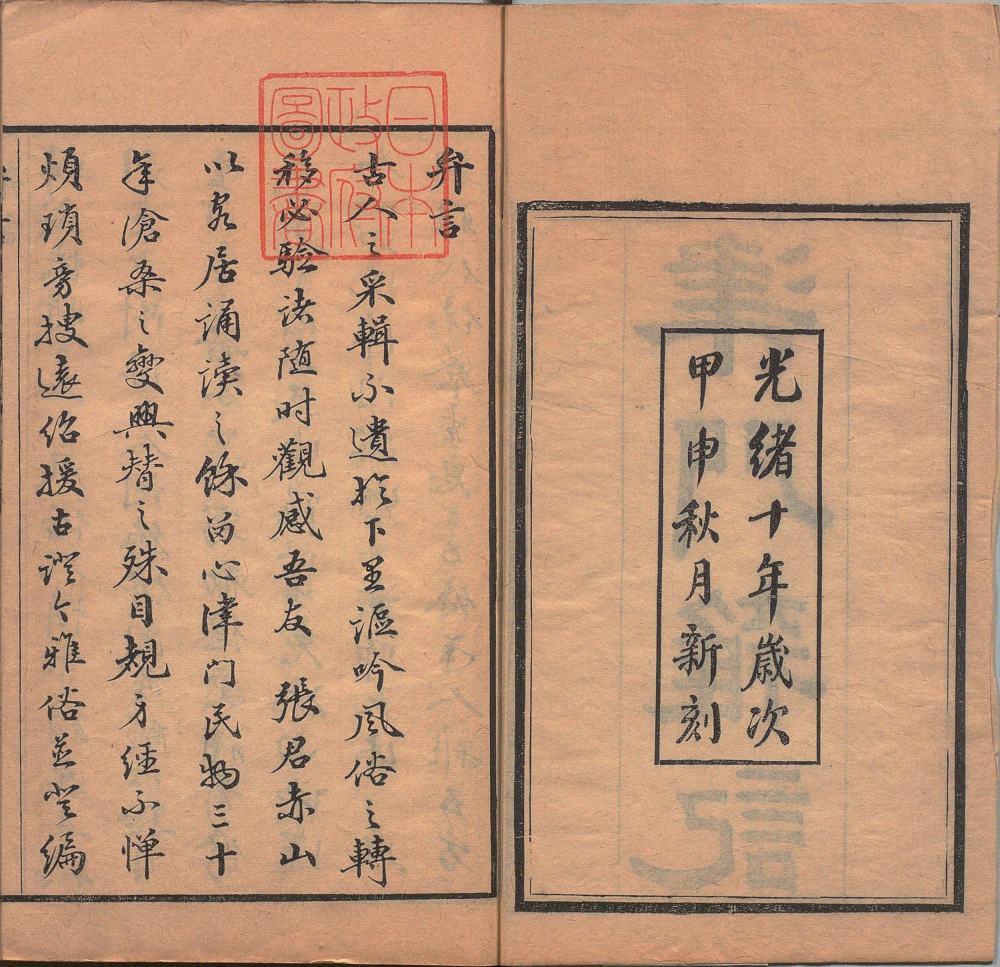 光緒十年歲次
甲申秋月新刻
日本
政府
圖書
弁言
古人之采輯不遺於下里謳吟風俗之轉
移必驗諸随时觀感吾友張君赤山
以家居誦讀之餘留心津門民物三十
年滄桑之變興替之殊目覩身經不憚
煩瑣旁搜遠紹援古證今雅俗並登編